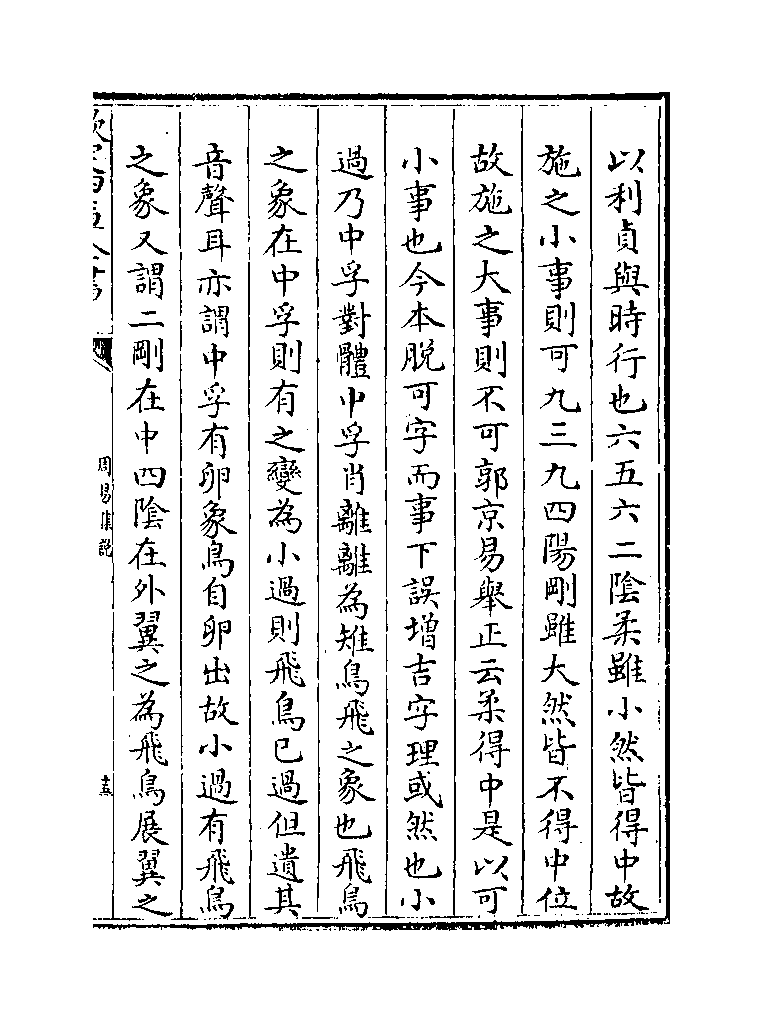 以利貞與時行也六五六二陰柔雖小然皆得中故
施之小事則可九三九四陽剛雖大然皆不得中位
故施之大事則不可郭京易舉正云柔得中是以可
小事也今本脫可字而事下誤增吉字理或然也小
過乃中孚對體中孚肖離離為雉鳥飛之象也飛鳥
之象在中孚則有之變為小過則飛鳥已過但遺其
音聲耳亦謂中孚有卵象鳥自卵出故小過有飛鳥
之象又謂二剛在中四陰在外翼之為飛鳥展翼之
欽定四庫全書
周易集說